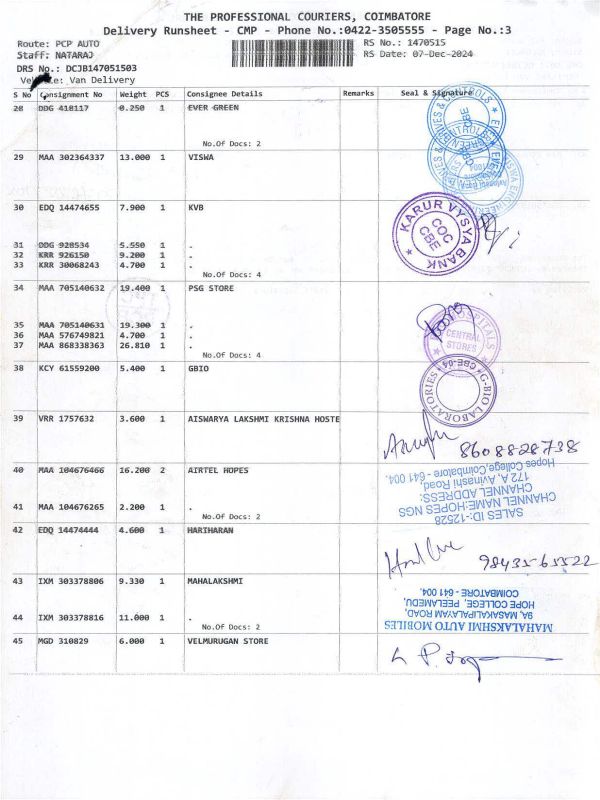 THE PROFESSIONAL COURIERS, COIMBATORE
Delivery Runsheet - CMP - Phone No.:0422-3505555 - Page No.:3
Route: PCP AUTO
RS No.: 1470515
Staff: NATARAJ
RS Date: 07-Dec-2024
DRS No.: DCJB147051503
Vehicle: Van Delivery
S No Consignment No Weight PCS Consignee Details Remarks Seal & Signature
28 DDG 418117 0.250 1 EVER GREEN
No.Of Docs: 2
29 MAA 302364337 13.000 1 VISWA
30 EDQ 14474655 7.900 1 KVB
KARUR VYSYA BANK
COC
CBE
31 DDG 928534 5.550 1 .
32 KRR 926150 9.200 1 .
33 KRR 30068243 4.700 1 .
No.Of Docs: 4
34 MAA 705140632 19.400 1 PSG STORE
35 MAA 705140631 19.300 1 .
36 MAA 576749821 4.700 1 .
37 MAA 868338363 26.810 1 .
No.Of Docs: 4
HOSPITALS
CENTRAL
STORES
38 KCY 61559200 5.400 1 GBIO
G-BIO LABORATORIES
CBE-04
39 VRR 1757632 3.600 1 AISWARYA LAKSHMI KRISHNA HOSTE
8608828738
40 MAA 104676466 16.200 2 AIRTEL HOPES
41 MAA 104676265 2.200 1 .
No.Of Docs: 2
SALES ID:-12528
CHANNEL NAME:HOPES NGS
CHANNEL ADDRESS:
172 A, Avinashi Road,
Hopes College,Coimbatore - 641 004.
42 EDQ 14474444 4.600 1 HARIHARAN
98435-65522
43 IXM 303378806 9.330 1 MAHALAKSHMI
44 IXM 303378816 11.000 1 .
No.Of Docs: 2
MAHALAKSHMI AUTO MOBILES
9A, MASAKALIPALAYAM ROAD,
HOPE COLLEGE, PEELAMEDU,
COIMBATORE - 641 004.
45 MGD 310829 6.000 1 VELMURUGAN STORE